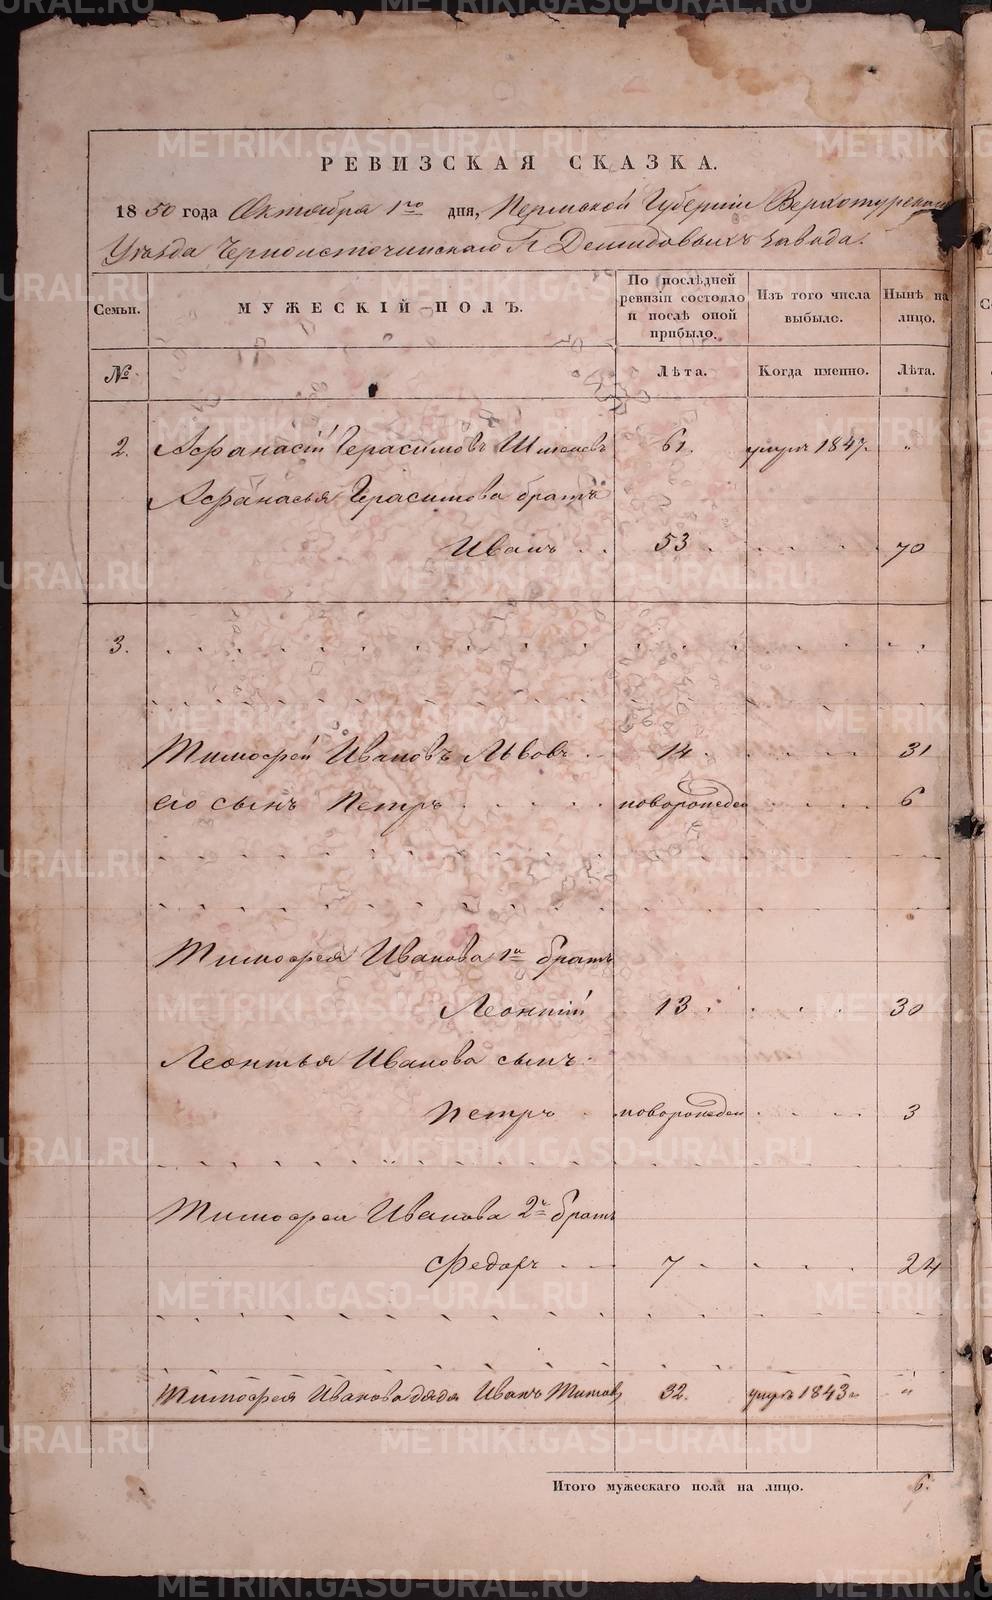 METRIKI.GASO-URAL.RU
РЕВИЗСКАЯ СКАЗКА.
1850 года Октября 1го дня, Пермской Губернiи Верхотурскаго
Уѣзда Черноисточинскаго Гг Демидовыхъ завода.
Семьи.
МУЖЕСКIЙ ПОЛЪ.
По послѣдней ревизiи состояло и послѣ оной прибыло.
Изъ того числа выбыло.
Нынѣ на лицо.
№
Лѣта.
Когда именно.
Лѣта.
2. Афанасiй Герасимовъ 61. умеръ 1847. "
Афанасья Герасимова братъ
Иванъ 53 70
3.
Тимофей Ивановъ Львовъ 14 31
его сынъ Петръ новорожден 6
Тимофея Иванова 1й братъ
Леонтiй 13 30
Леонтья Иванова сынъ
Петръ новорожден 3
Тимофея Иванова 2й братъ
Федоръ 7 24
Тимофея Иванова дядя Иванъ Титовъ 32. умеръ 1843 "
Итого мужескаго пола на лицо. 6.